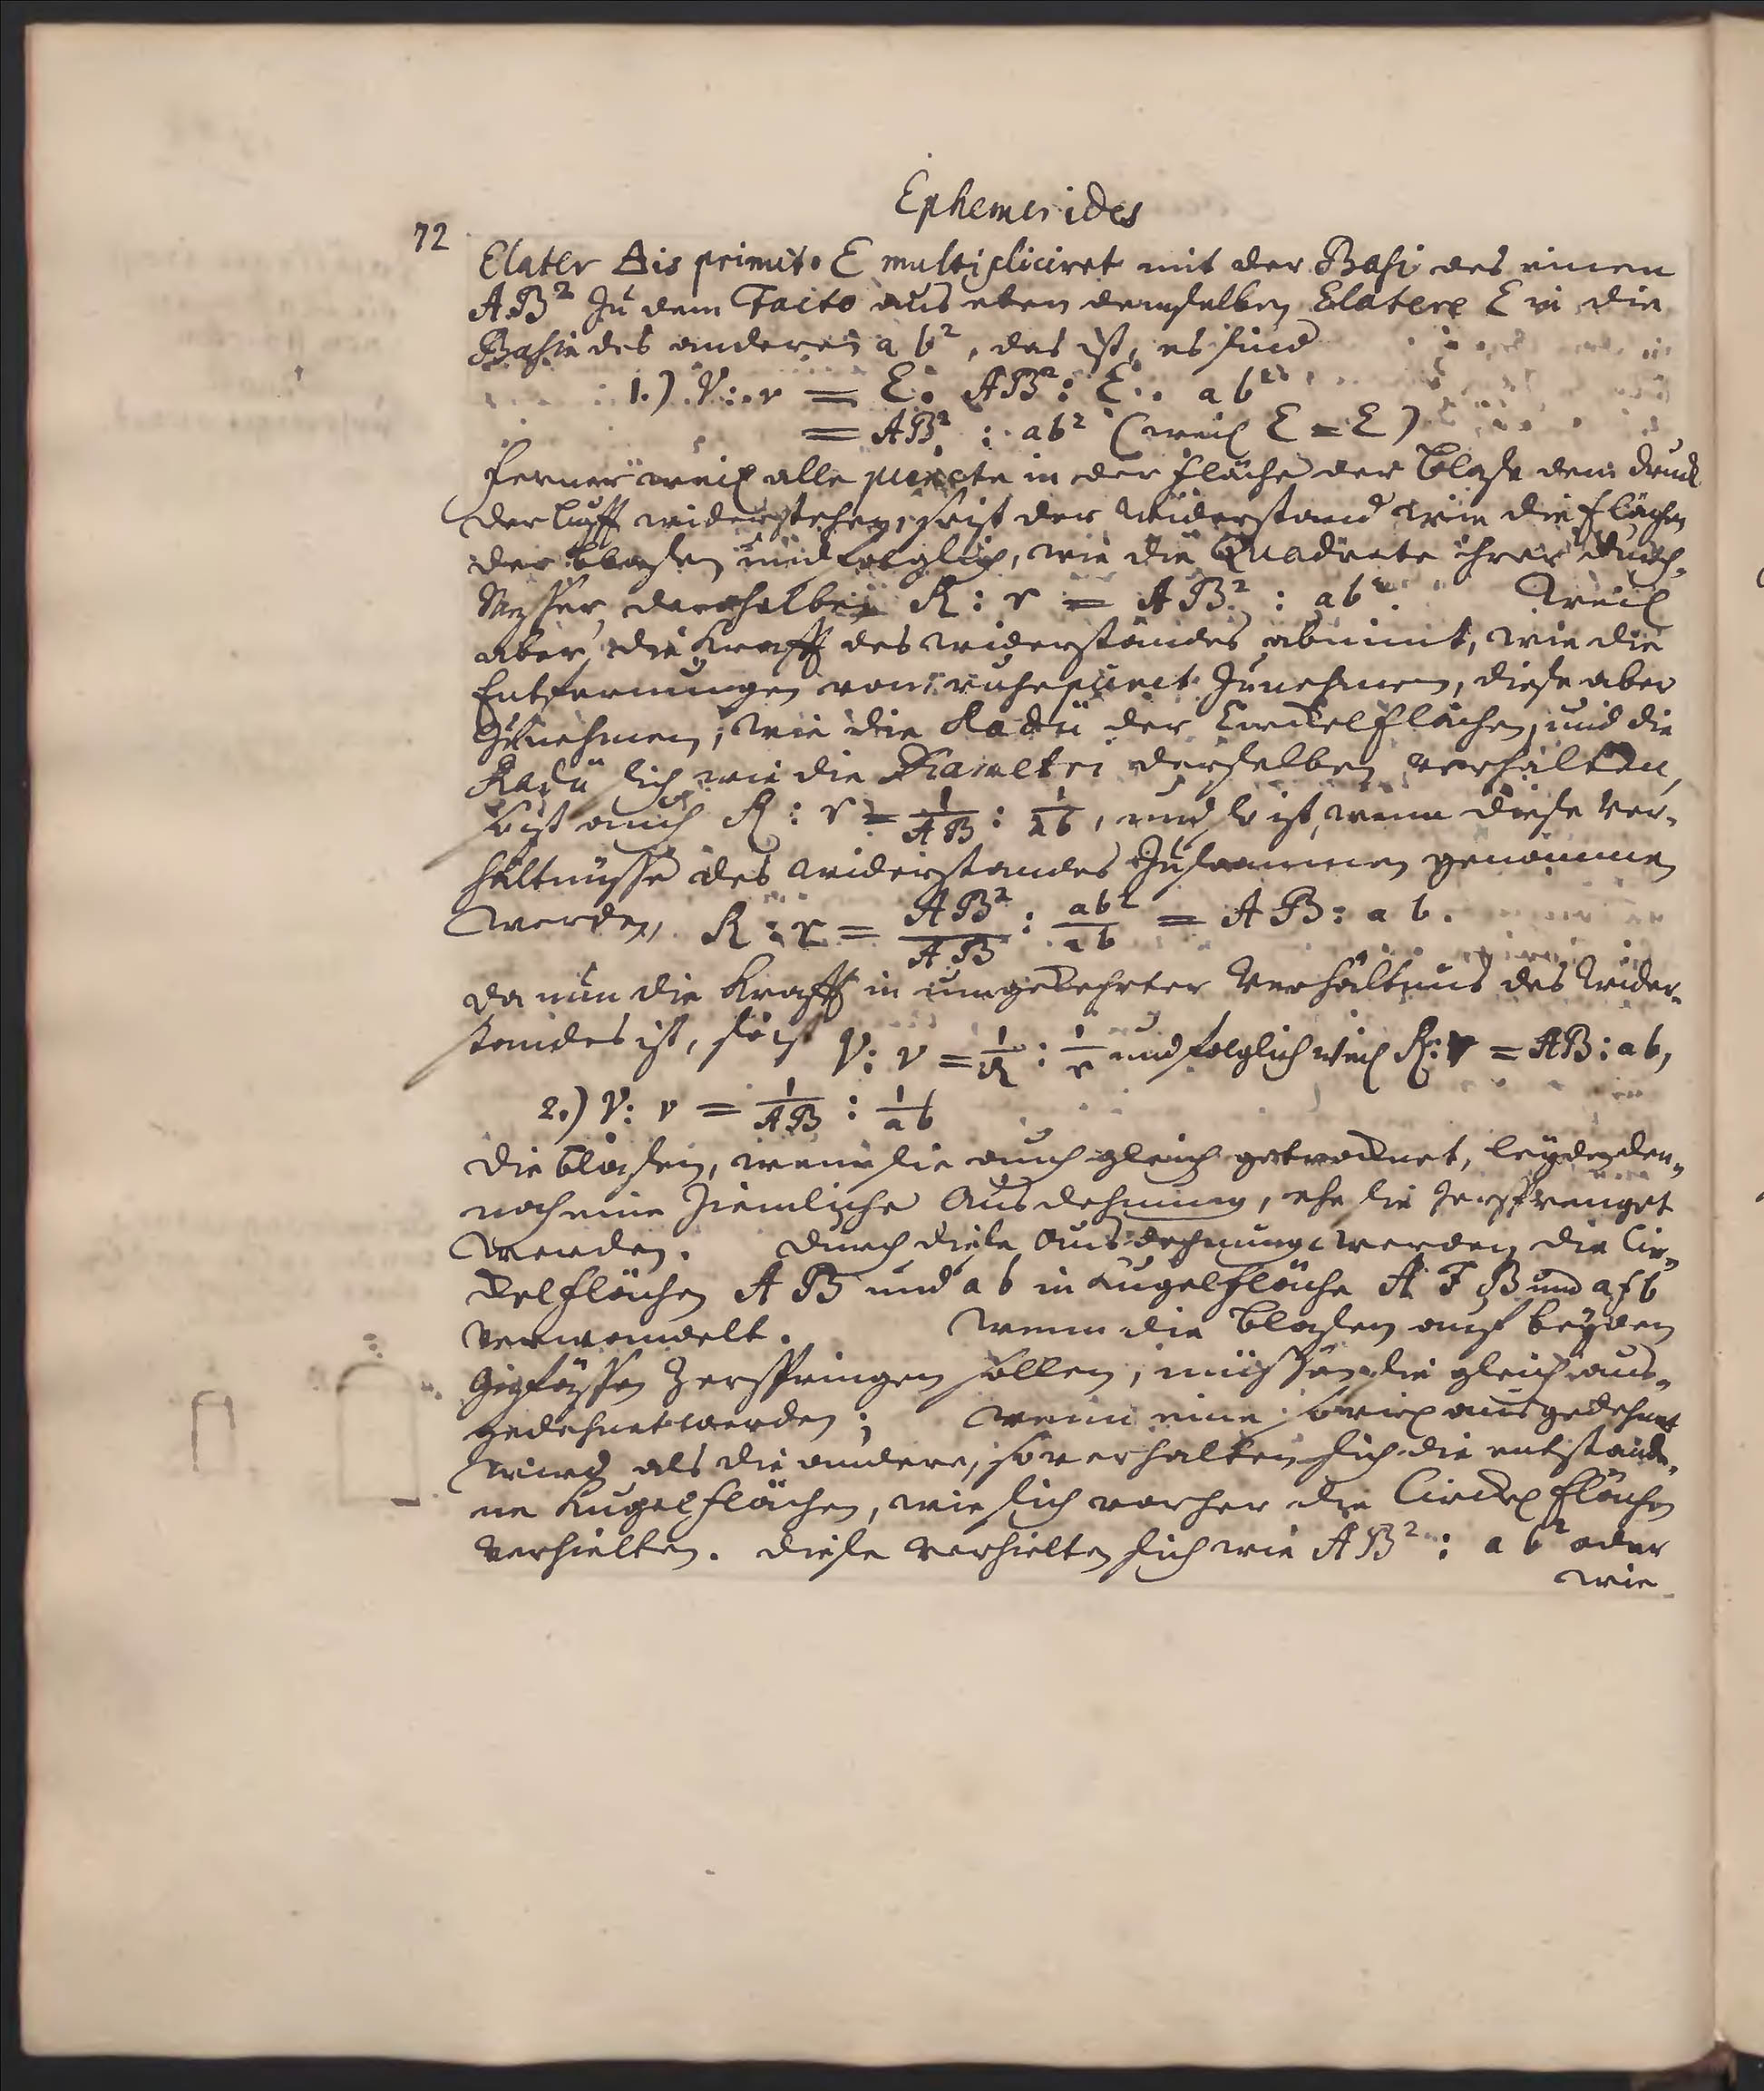 Ephemerides
72
Elater Aëis primit. E multipliciret mit der Basi des einen
AB² zu dem Facto aus eben demselben Elatere E in die
Basin des anderen ab², das ist, es sind
1.) V : v = E. AB² : E. ab²
= AB² : ab² (weil E = E)
ferner weil alle puncte in der Fläche der Blase dem druck
der Lufft widerstehen, so ist der widerstand wie die flächen
der Blasen und folglich, wie die Quadrate ihrer Durch-
Messer, derohalben R : r = AB² : ab². Weil
aber die Krafft des widerstandes abnimt, wie die
Entfernungen vom ruhepunct zunehmen, diese aber
zunehmen, wie die Radii der Circkelflächen, und die
Radii sich wie die Diametri derselben verhalten,
so ist auch R : r = 1/AB : 1/ab, und so ist, wenn diese Ver-
hältnüsse des widerstandes zusammen genommen
werden, R : r = AB²/AB : ab²/ab = AB : ab.
da nun die Krafft in umgekehrter Verhältnüs des wider-
standes ist, so ist V : v = 1/R : 1/r und folglich weil R : r = AB : ab,
2.) V : v = 1/AB : 1/ab
die Blasen, wenn sie auch gleich getrocknet, leyden den-
noch eine ziemliche Ausdehnung, ehe sie zersprenget
werden. durch diese Ausdehnung werden die Cir-
ckelflächen AB und ab in Kugelfläche AFB und afb
verwandelt. Wenn die Blasen auf beyden
Gefässen zerspringen sollen, müssen sie gleich aus-
gedehnet werden; wenn eine so viel ausgedehnt
wird als die andere, so verhalten sich die entstande-
ne Kugelflächen, wie sich vorher die Circkel flächen
verhielten. diese verhielten sich wie AB² : ab² oder
wie